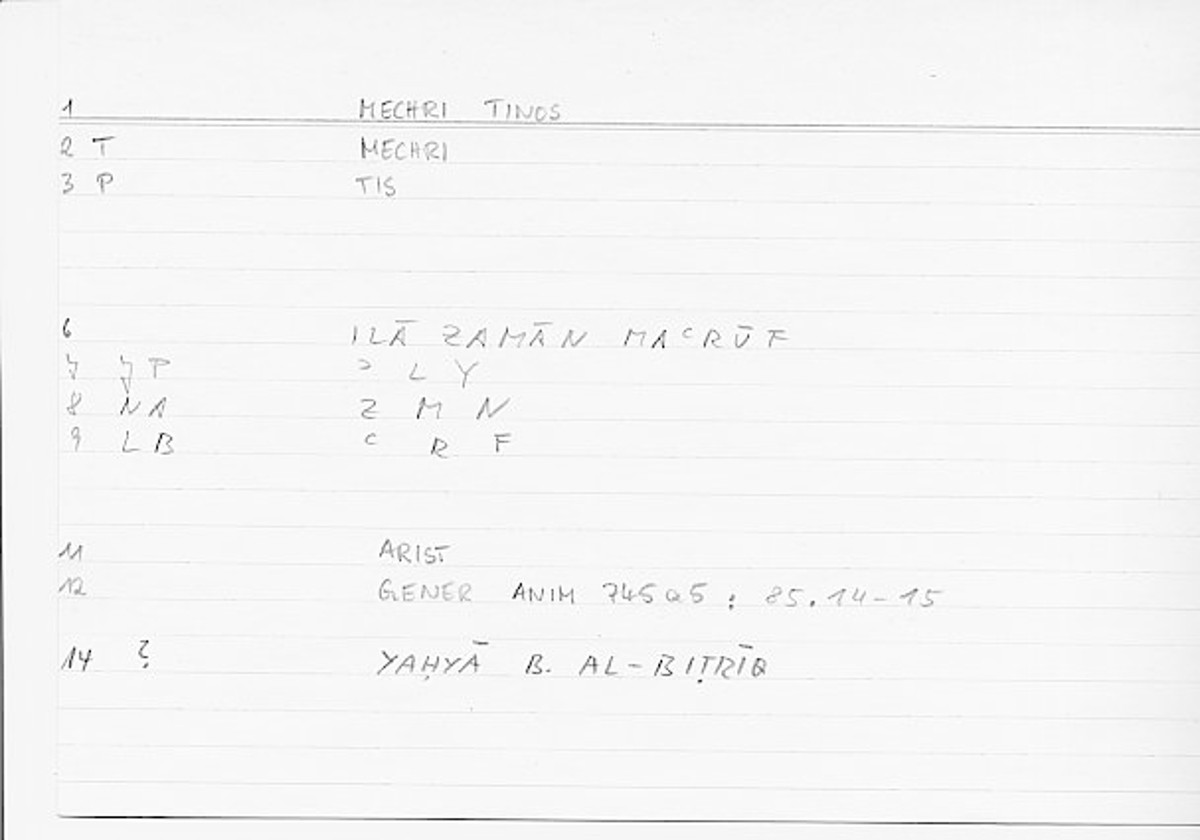 1 MECHRI TINOS
2 T MECHRI
3 P TIS
6 ILĀ ZAMĀN MAʿRŪF
7 JP ʾ L Y
8 NA Z M N
9 LB ʿ R F
11 ARIST
12 GENER ANIM 745a5 : 85.14-15
14 ? YAḤYĀ B. AL-BIṬRĪQ